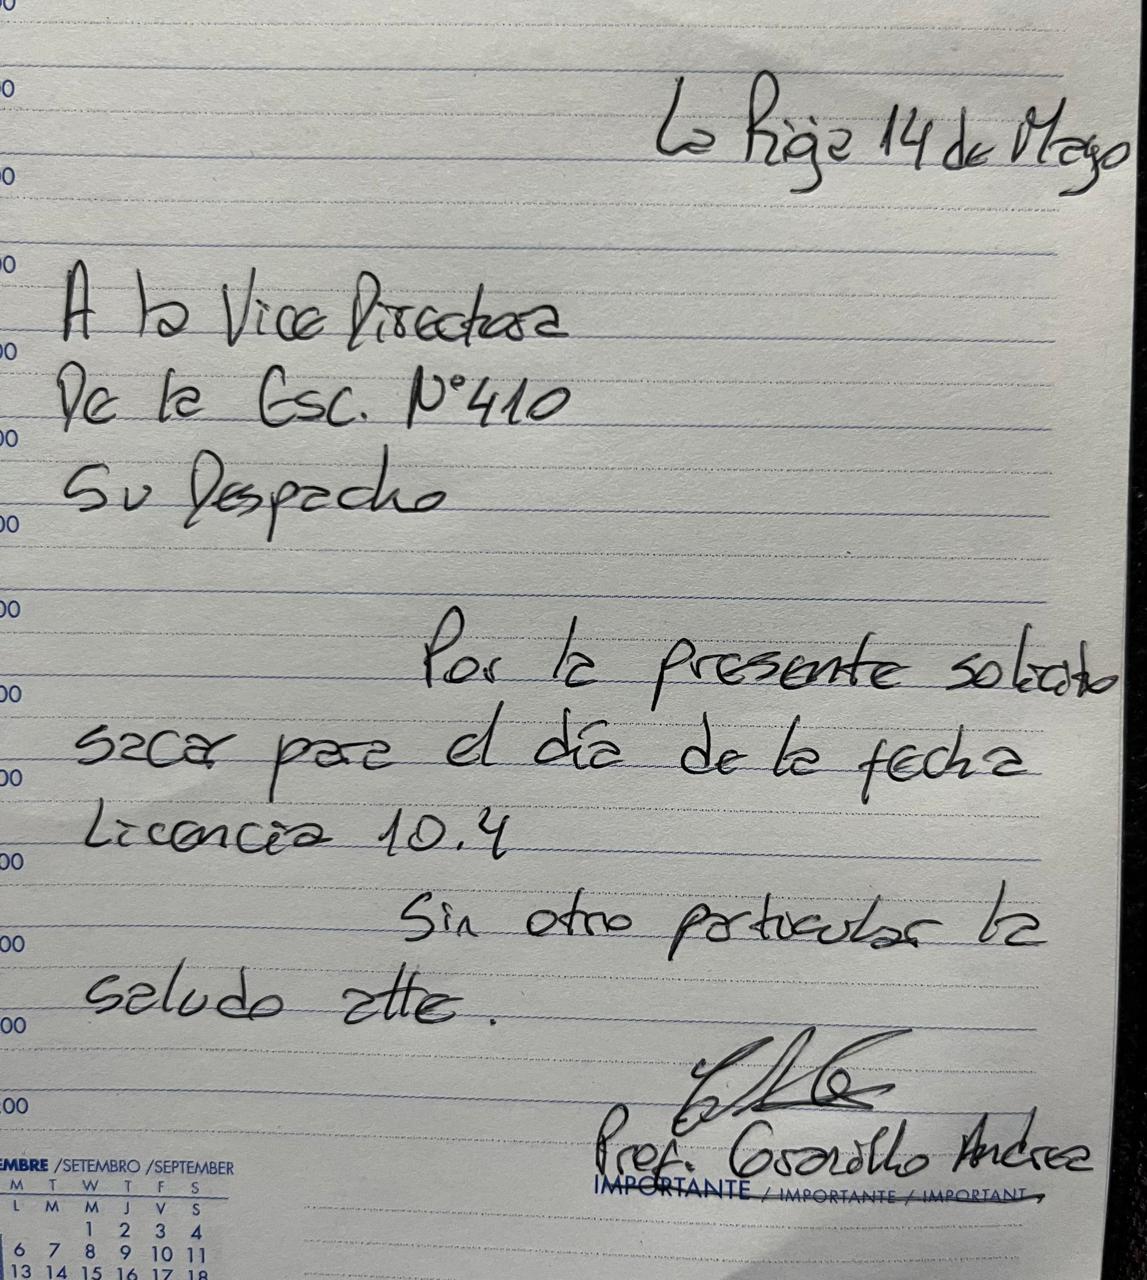 La Rioja 14 de Mayo
A la Vice Directora
De la Esc. N°410
Su Despacho
Por la presente solicito
sacar para el día de la fecha
Licencia 10.4
Sin otro particular la
saludo atte.
Prof. Andrea
IMPORTANTE / IMPORTANTE / IMPORTANT
EMBRE / SETEMBRO / SEPTEMBER
M T W T F S
L M M J V S
1 2 3 4
6 7 8 9 10 11
13 14 15 16 17 18
00
00
00
00
00
00
00
00
00
00
00
00
:00